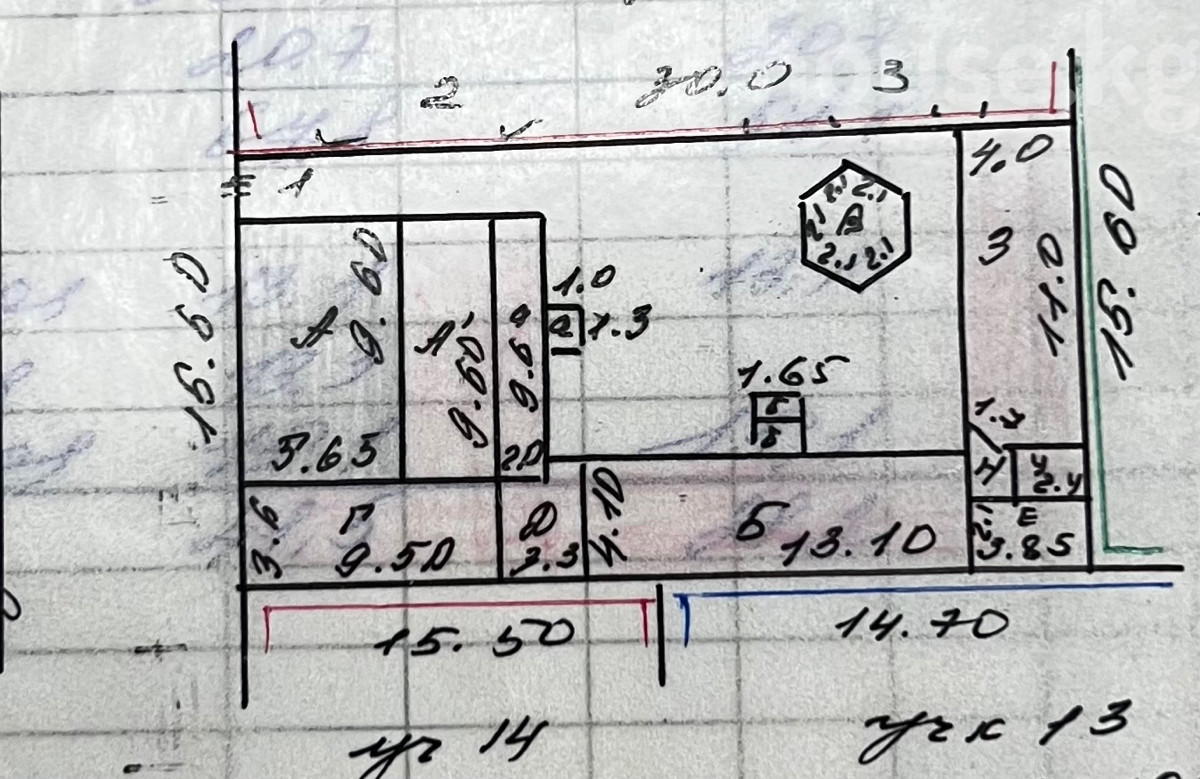 2 30.0 3
1
4.0
15.50
15.60
А 9.60
5.65
А' 9.60
9.60
2.0
1.0
а 1.3
2.1 2.1
2.1 В
2.1 2.1
3
11.0
1.65
б
б
Н
У
2.4
3.6
Г
9.50
Д
3.3
4.10
Б 13.10
2.1
Е
3.85
15.50 14.70
уч 14 учк 13